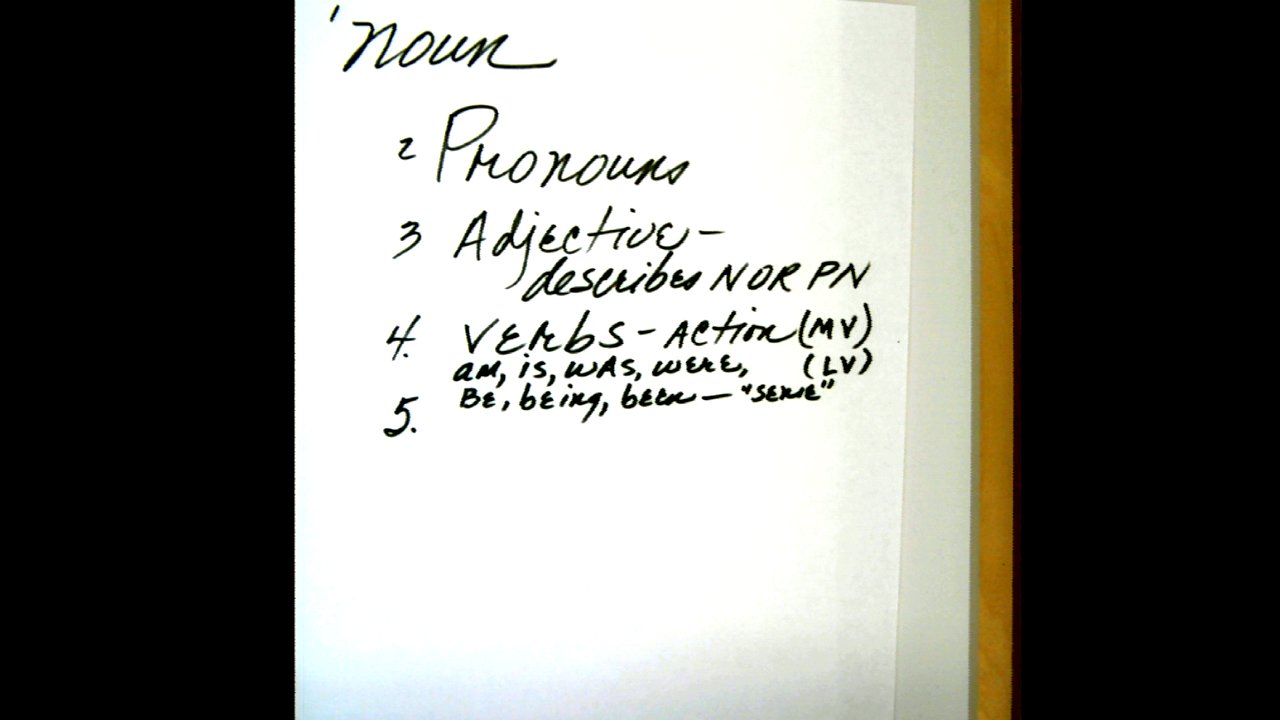 1 noun
2 Pronouns
3 Adjective -
describes N OR PN
4. VERbS - Action (MV)
am, is, was, were, (LV)
5. BE, being, been — "sense"